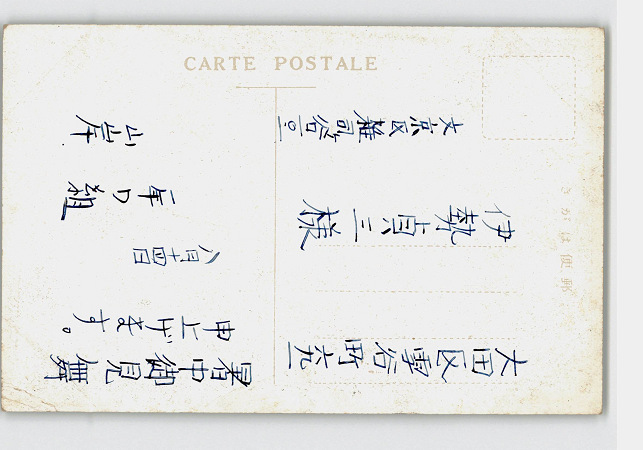 CARTE POSTALE
郵便はがき
大田区雪谷町六九一
伊勢貞三様
文京区雑司谷
暑中御見舞
申上げます。
八月十四日
二年ロ組
山岸